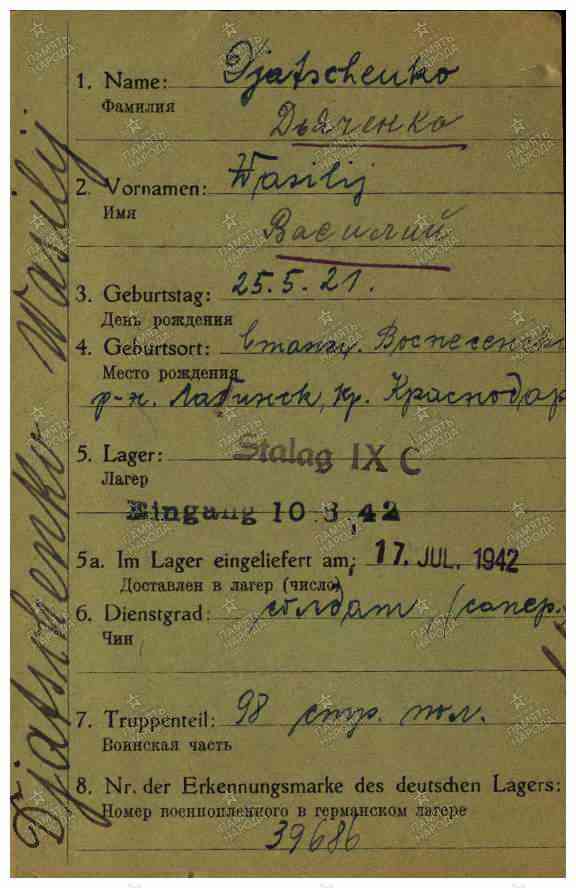 1. Name: Djatschenko
Фамилия
Дьяченко
2. Vornamen: Wasilij
Имя
Василий
3. Geburtstag: 25.5.21.
День рождения
4. Geburtsort: Воснесенска
Место рождения
р-н. Лабинск, кр. Краснодар
5. Lager: Stalag IX C
Лагер
Eingang 10 8, 42
5a. Im Lager eingeliefert am: 17. JUL. 1942
Доставлен в лагер (число)
6. Dienstgrad: солдат, (сапер.
Чин
7. Truppenteil: 98 стр. пол.
Воинская часть
8. Nr. der Erkennungsmarke des deutschen Lagers:
Номер военнопленного в германском лагере
39686
Djatschenko Wasilij
ПАМЯТЬ НАРОДА